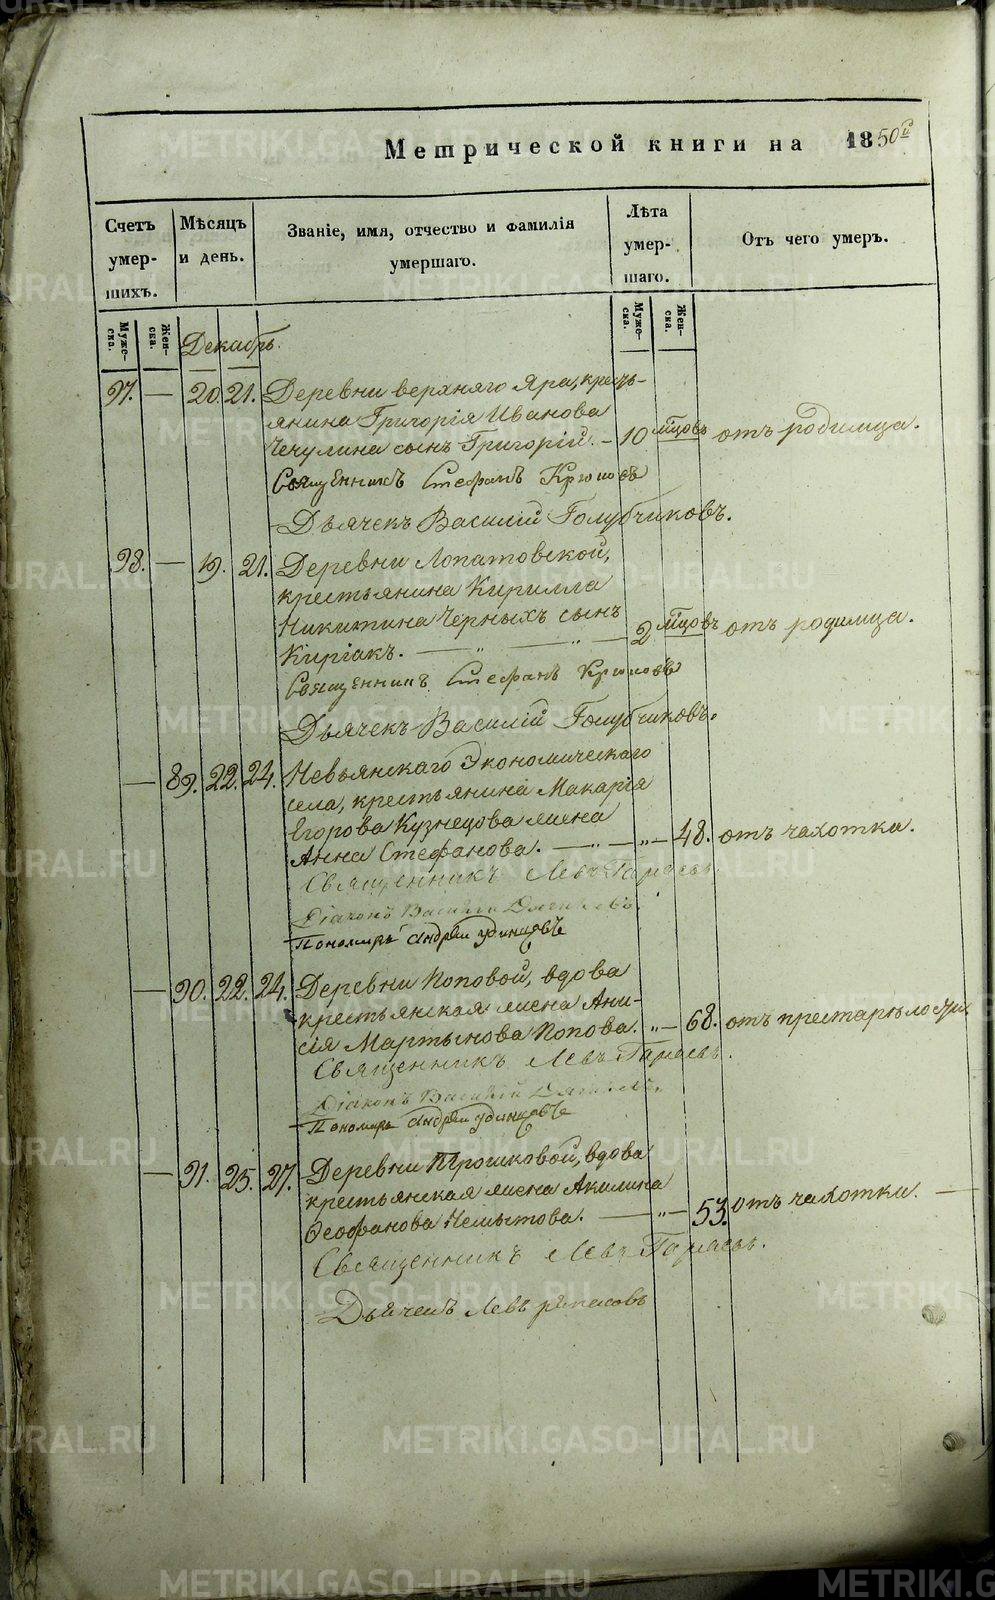 Метрической книги на 1850й
Счетъ умер- шихъ.
Мѣсяцъ и день.
Званіе, имя, отчество и фамилія умершаго.
Лѣта умер- шаго.
Отъ чего умеръ.
Муже- ска.
Жен- ска.
Муже- ска.
Жен- ска.
Декабрь.
97. — 20. 21. Деревни верхняго Яра, кресть-
янина Григорія Иванова
Чечулина сынъ Григорій. — 10 мцовъ отъ родимца.
Священникъ Стефанъ Крюковъ
Дьячекъ Василій Голубчиковъ.
98. — 19. 21. Деревни Лопатовской,
крестьянина Кирилла
Никитина Черныхъ сынъ
Киріакъ. — „ — „ — 2 мцовъ отъ родимца.
Священникъ Стефанъ Крюковъ
Дьячекъ Василій Голубчиковъ.
— 89. 22. 24. Невьянскаго Экономическаго
села, крестьянина Макарія
Егорова Кузнецова жена
Анна Стефанова. — „ — „ — 48. отъ чахотки.
Священникъ Левъ
Діаконъ Василій
Пономарь Андрей Удинцовъ
— 90. 22. 24. Деревни Поповой, вдова
крестьянская жена Ани-
сія Мартынова Попова. „ — 68. отъ престарѣлости
Священникъ Левъ
Діаконъ Василій
Пономарь Андрей Удинцовъ
— 91. 25. 27. Деревни Трошковой, вдова
крестьянская жена Акилина
Ѳеофанова Немытова. — „ — 53. отъ чахотки. —
Священникъ Левъ
Дьячекъ Левъ
METRIKI.GASO-URAL.RU